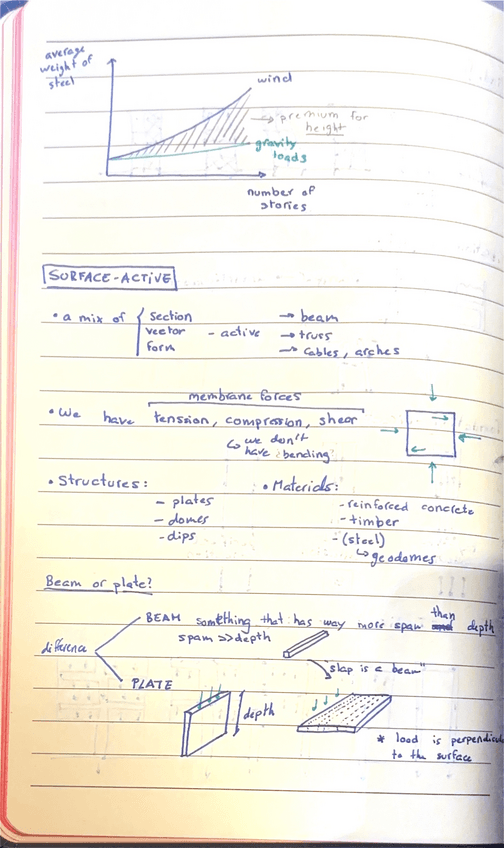 average
weight of
steel
wind
→ premium for
height
gravity
loads
number of
stories
SURFACE-ACTIVE
• a mix of { section → beam
vector - active → truss
form → cables, arches
membrane forces
• We have tension, compression, shear
↳ we don't
have bending
• Structures: • Materials:
- plates - reinforced concrete
- domes - timber
- dips - (steel)
↳ geodomes
Beam or plate?
difference
BEAM something that has way more span than depth
spam >> depth
"slap is a beam"
PLATE
depth
* load is perpendicula
to the surface